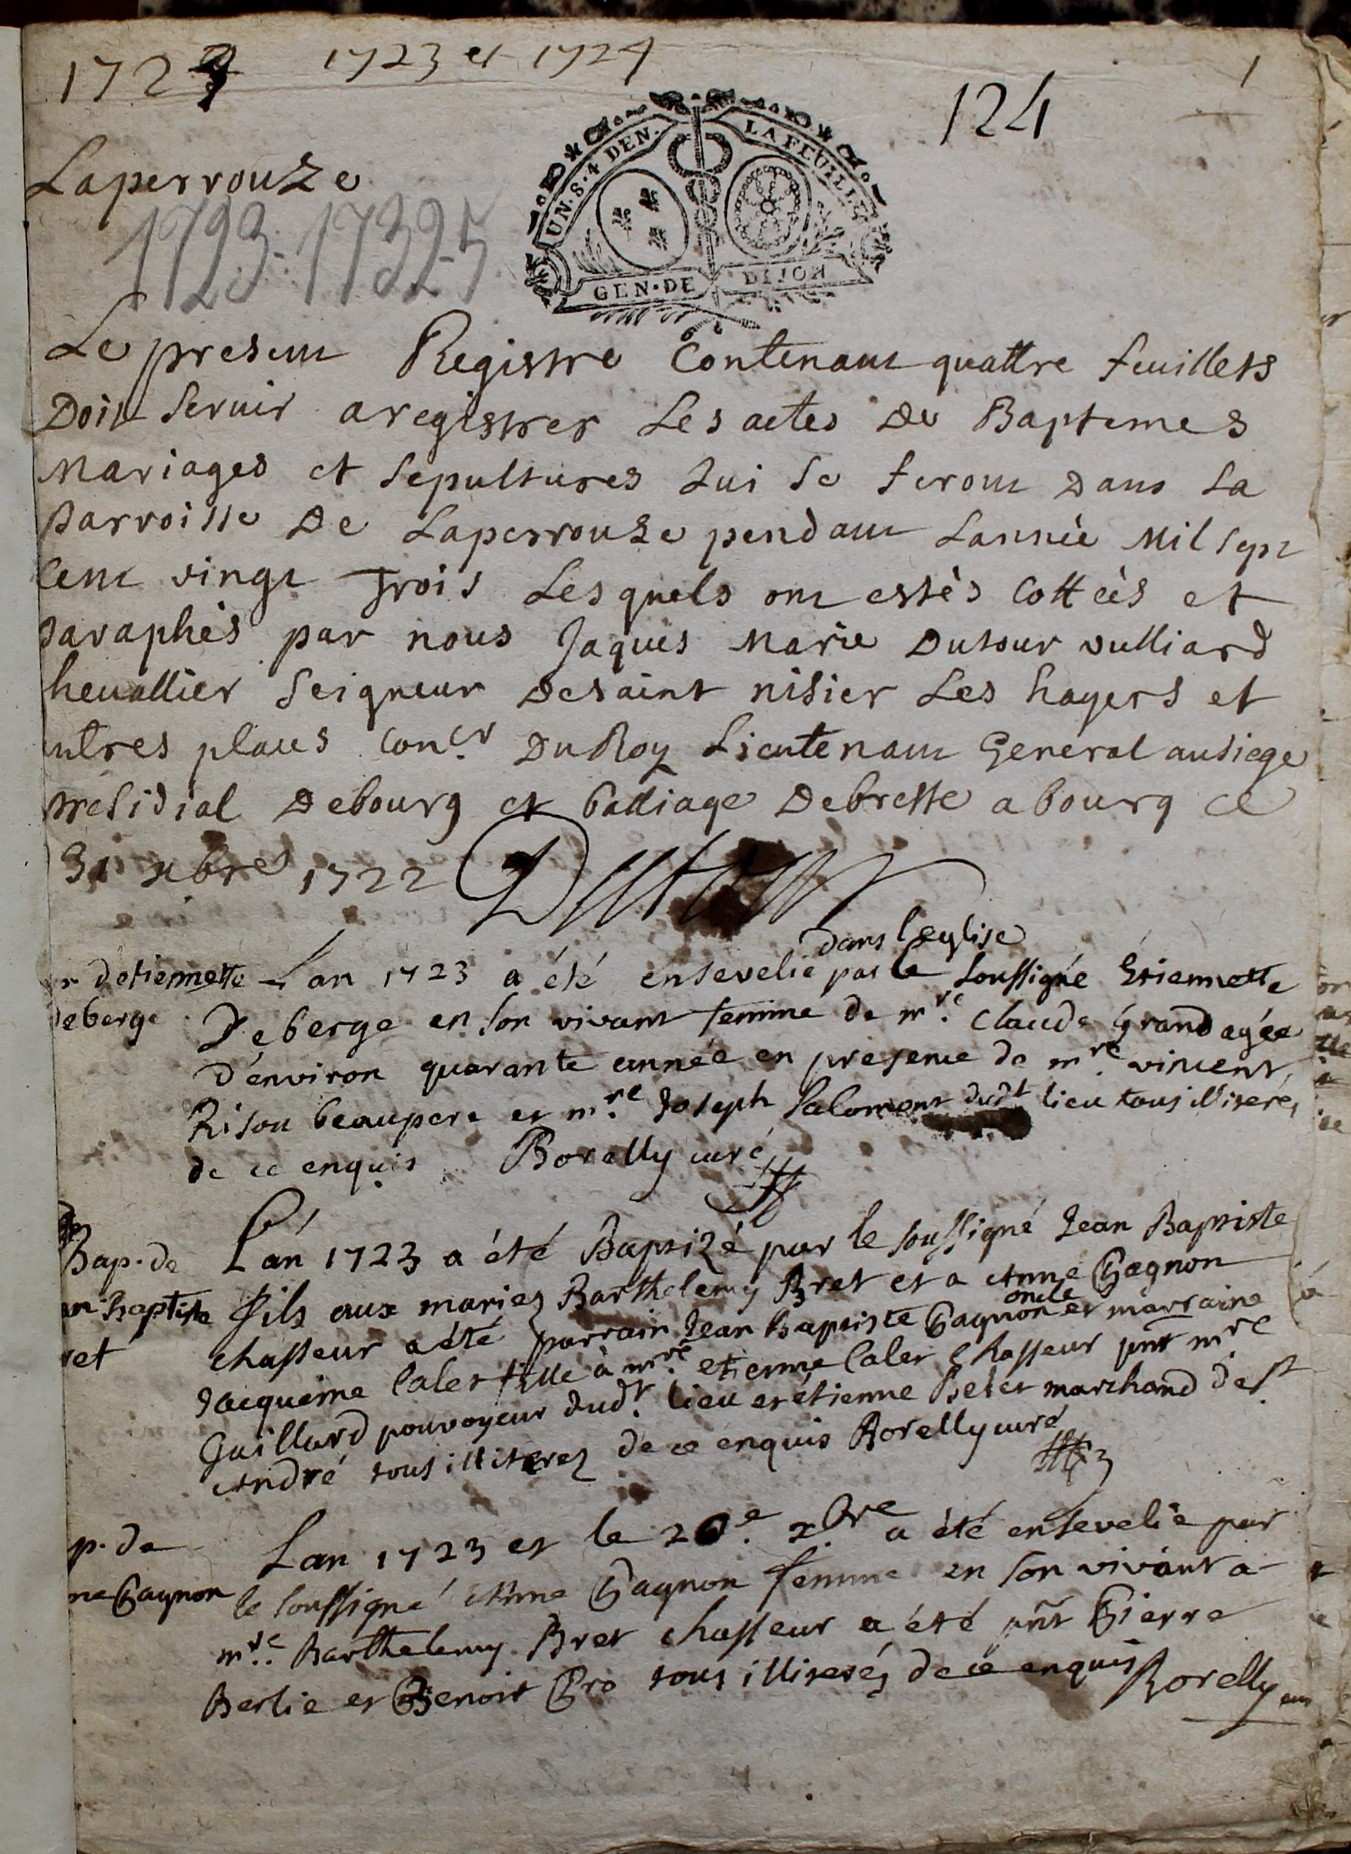 1723 1723 et 1724
124
1
UN.S.4 DEN. LA FEUILLE
GEN.DE DIJON
Laperrouze
1723-1732-5
Le present Registre Contenant quattre feuillets
Doit servir a registrer Les actes De Baptemes
Mariages et sepultures Qui se feront Dans La
parroisse De Laperrouze pendant Lannée Mil sept
Cent vingt Trois Lesquels ont estés Cottées et
paraphés par nous Jaques Marie Dutour vulliard
hevallier Seigneur De saint nisier Les hayers et
utres places Con.er Du Roy Lieutenant General au siege
presidial De bourg et balliage De bresse a bourg ce
31 xbre 1722 Dutour
dans l'eglise
r d'etiennette
Deberge
L'an 1723 a été ensevelie par le soussigné Etiennette
Deberge en son vivant femme de m.re Claude Grand agée
d'environ quarante année en presence de m.re vincent
Rison beaupere et m.re Joseph Salomont dud.t lieu tous illiterés
de ce enquis Borelly curé
Bap. de
an Baptiste
ret
L'an 1723 a été Baptizé par le soussigné Jean Baptiste
fils aux mariez Barthelemy Bret et a Anne Gagnon
oncle
chasseur a été parrain Jean Baptiste Gagnon et marraine
Jacqueme Calet fille à m.re etienne Calet chasseur pnt m.re
Guillard pouvoyeur dud.t lieu et étienne Belet marchand de S.t
André tous illiterez de ce enquis Borelly curé
p. de
ne Gagnon
L'an 1723 et le 20e. xbre a été ensevelie par
le soussigné Anne Gagnon femme en son vivant a
m.re Barthelemy Bret chasseur a été pnt Pierre
Berlie et Benoit Gro tous illiterés de ce enquis Borelly cur